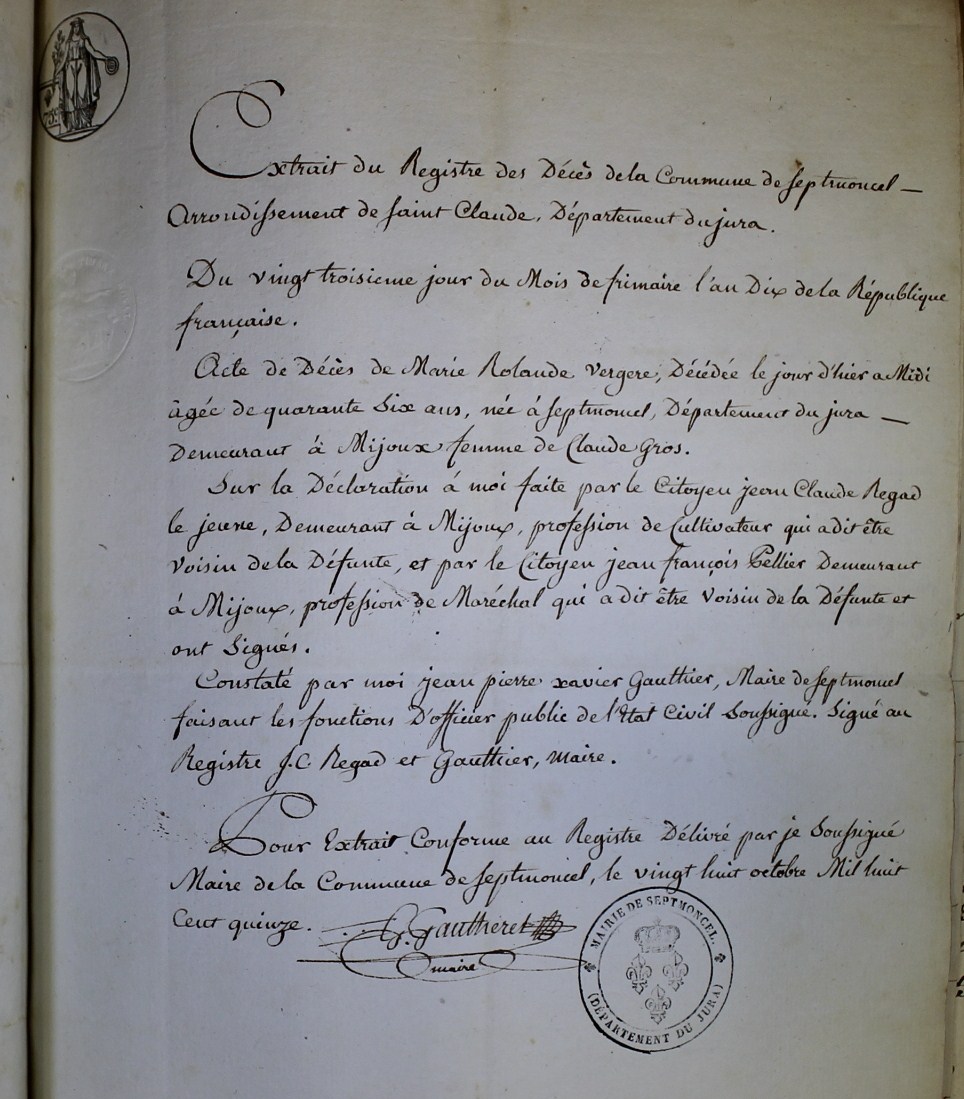 Extrait du Registre des Décès de la Commune de Septmoncel —
Arrondissement de Saint Claude, Département du jura.
Du vingt troisieme jour du Mois de frimaire l'an Dix de la République
française.
Acte de Décès de Marie Rolande Vergere, Décédée le jour d'hier a Midi
âgée de quarante Six ans, née à Septmoncel, Département du jura —
Demeurant à Mijoux femme de Claude Gros.
Sur la Déclaration à moi faite par le Citoyen jean Claude Regad
le jeune, Demeurant à Mijoux, profession de Cultivateur qui a dit être
Voisin de la Défunte, et par le Citoyen jean françois Pellier Demeurant
à Mijoux, profession de Maréchal qui a dit être Voisin de la Défunte et
ont Signés.
Constaté par moi jean pierre xavier Gauthier, Maire de Septmoncel
faisant les fonctions D'officier public de l'Etat Civil Soussigné. Signé au
Registre J.C. Regad et Gauthier, maire.
Pour Extrait Conforme au Registre Délivré par je Soussigné
Maire de la Commune de Septmoncel, le vingt huit octobre Mil huit
Cent quinze. Gauthieret
maire
MAIRIE DE SEPTMONCEL.
(DÉPARTEMENT DU JURA)